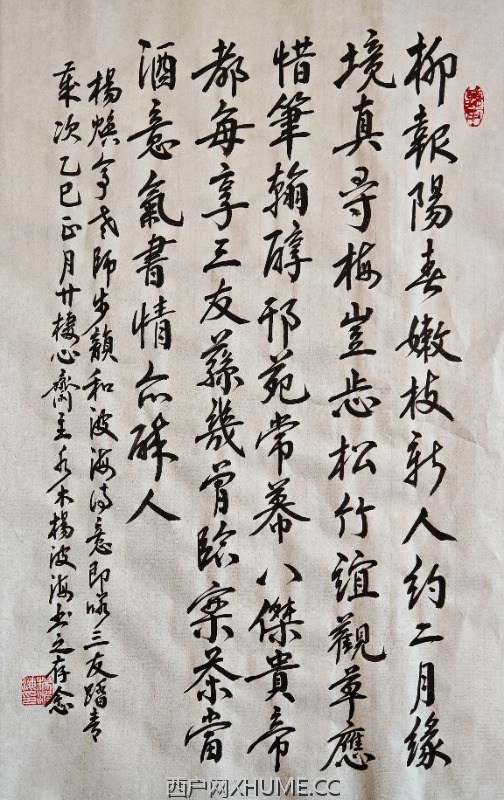 柳報陽春嫩枝新人約二月緣
境真尋梅豈忘松竹誼觀草應
惜筆翰醇邗苑常慕八傑貴帝
都每享三友蓀幾曾臨案茶當
酒意氣書情亦酥人
楊煥亭老師步韻和波海詩意即詠三友踏青
歲次乙巳正月廿棲心齋主永木楊波海書之存念
西户网XHUME.CC